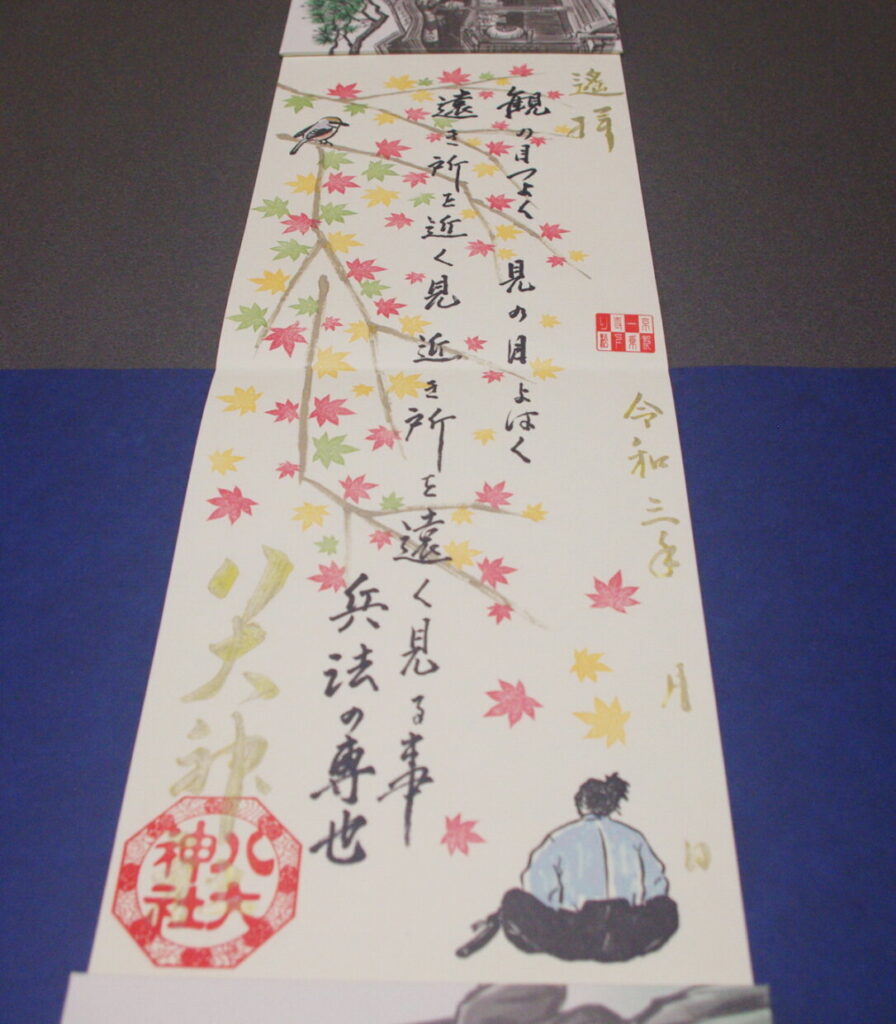 遙拝
京都一乗寺下り松
令和三年 月 日
観の目つよく 見の目よはく
遠き所を近く見 近き所を遠く見る事
兵法の専也
八大神社
八大神社